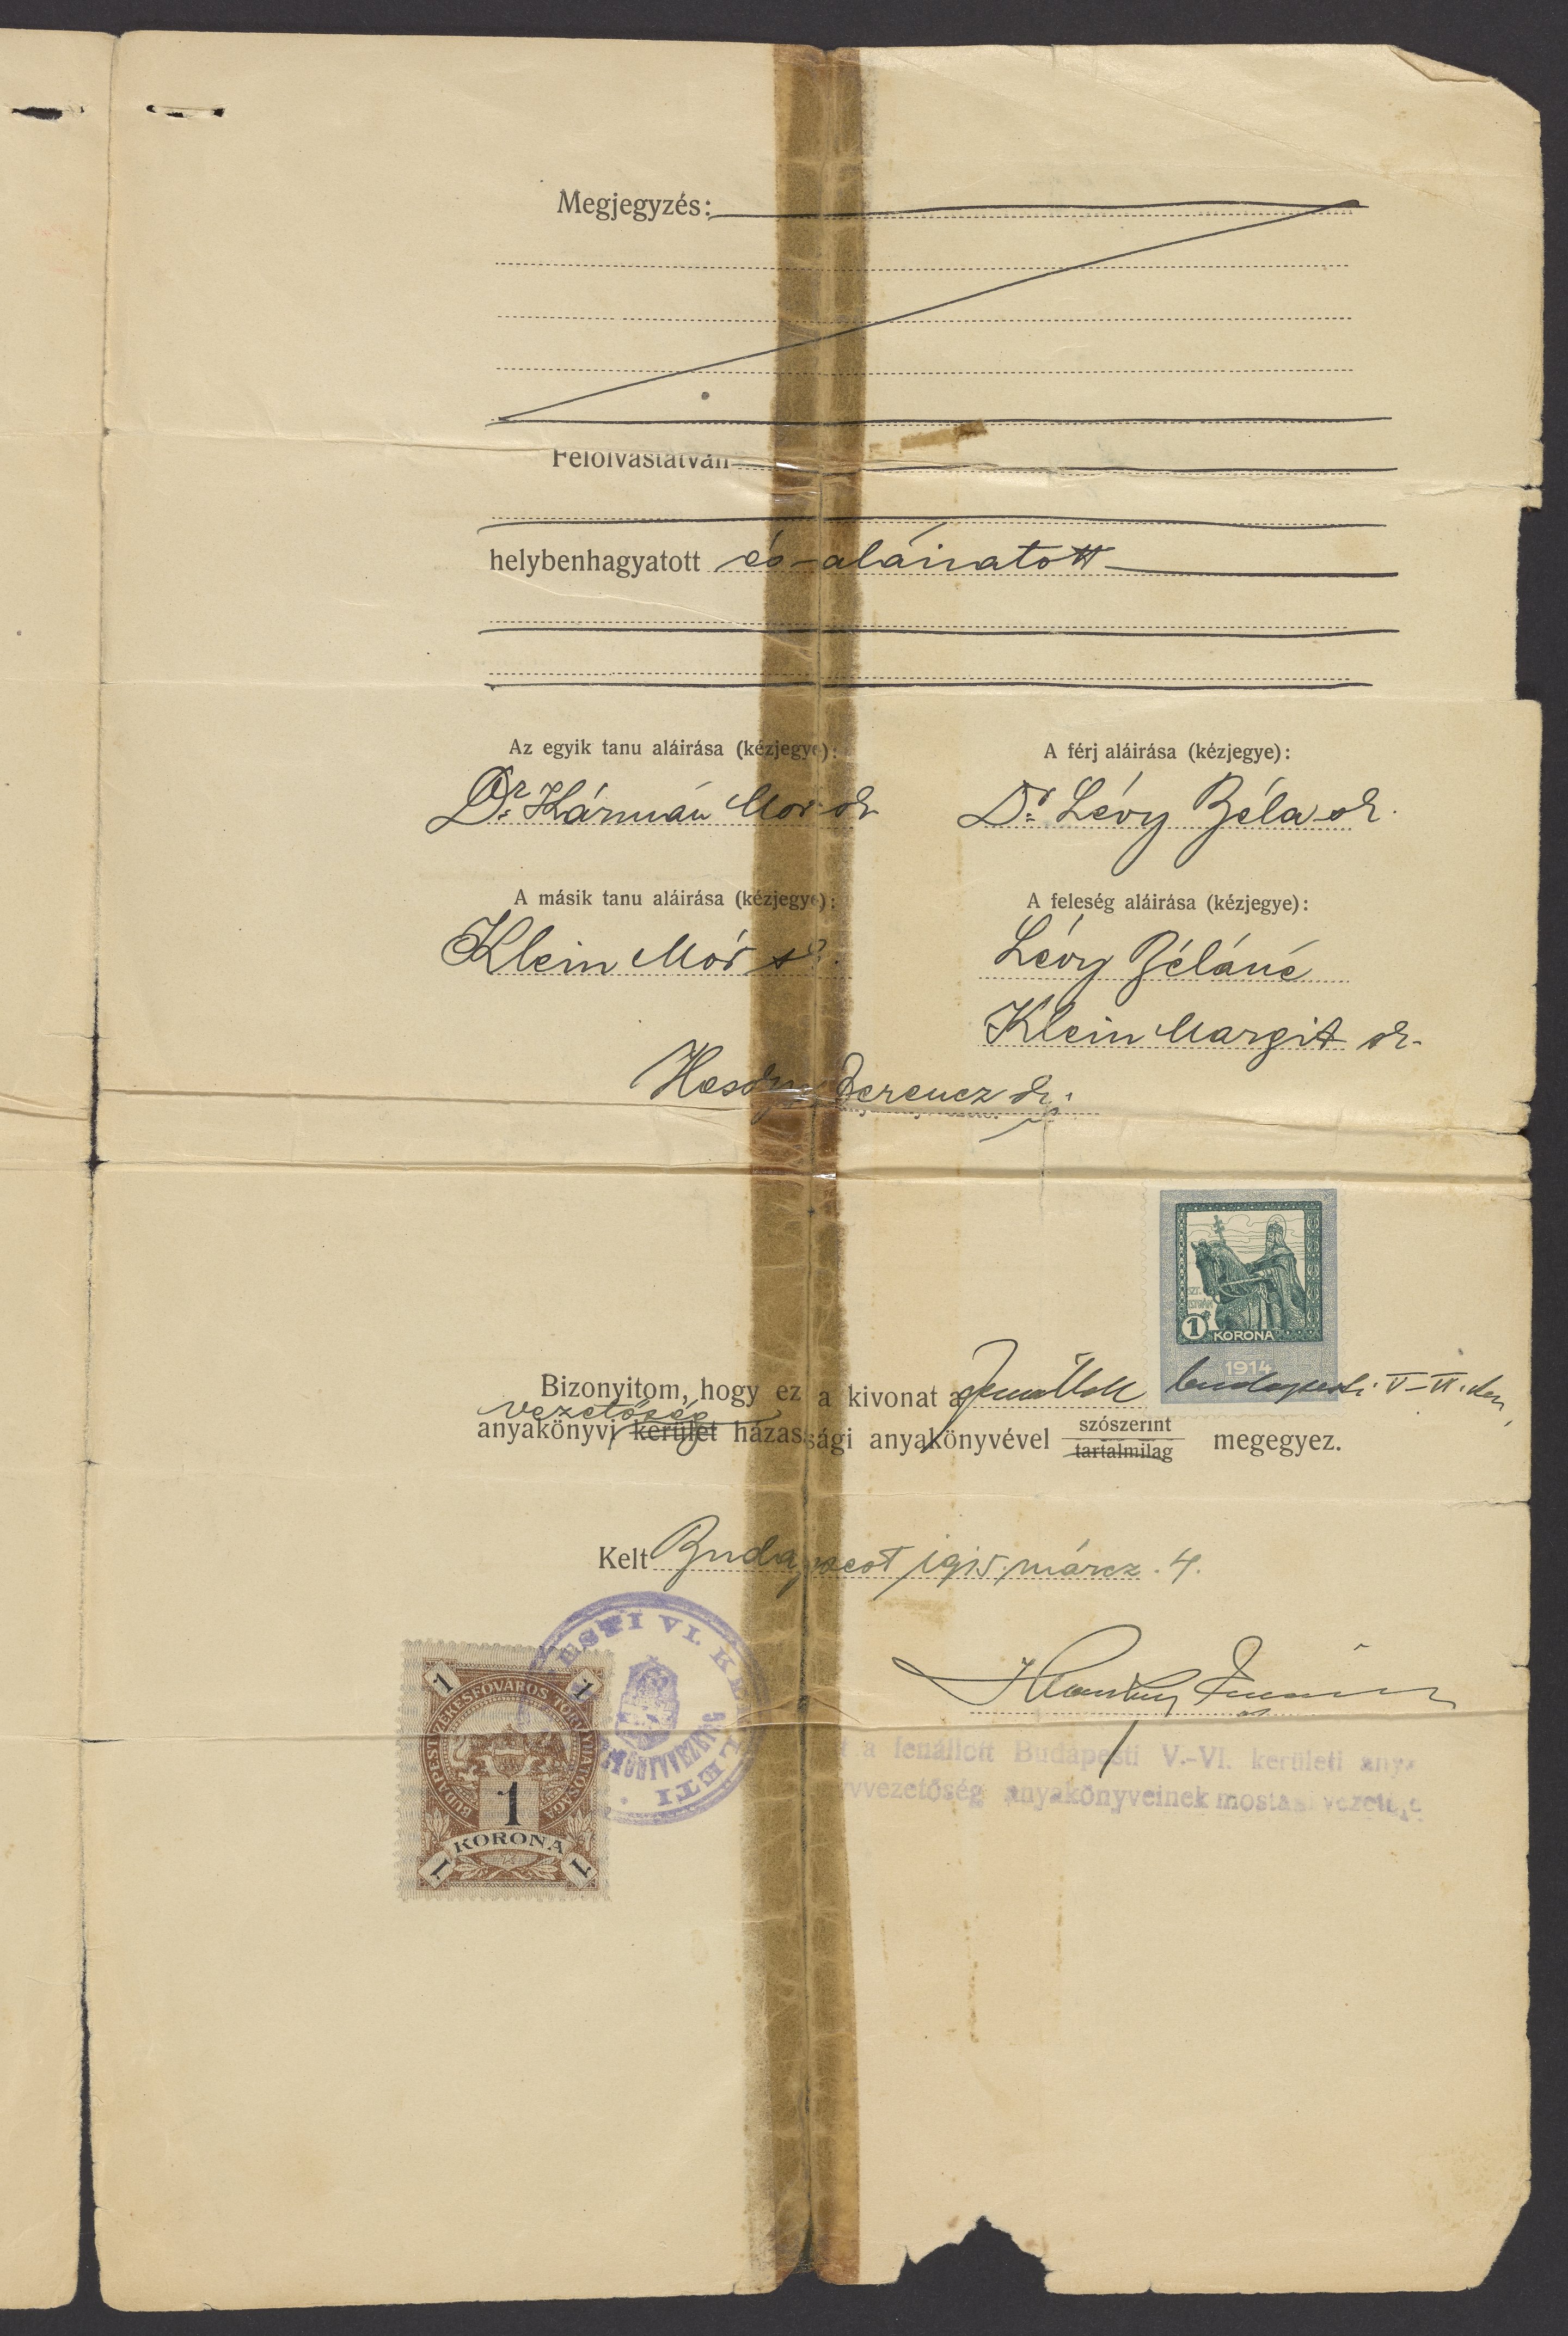 Megjegyzés:
Felolvastatván
helybenhagyatott és aláiratott
Az egyik tanu aláirása (kézjegye):
A férj aláirása (kézjegye):
Dr. Kármán Mór sk
Dr. Lévy Béla sk.
A másik tanu aláirása (kézjegye):
A feleség aláirása (kézjegye):
Klein Mór sk.
Lévy Béláné
Klein Margit sk.
Ferencz sk.
SZT. ISTVÁN
1 KORONA
1914
Bizonyitom, hogy ez a kivonat a fennállott budapesti V–VI. ker.
vezetőség
anyakönyvi kerület házassági anyakönyvével szószerint tartalmilag megegyez.
Kelt Budapest 1915. márcz. 4.
ESTI VI. KERÜLETI
ANYAKÖNYVVEZETŐ
BUDAPEST SZÉKESFŐVÁROS TÖRVÉNYHATÓSÁGA
1 1
1
KORONA
1 1
a fenállott Budapesti V.–VI. kerületi anya
yvvezetőség anyakönyveinek mostani vezetője